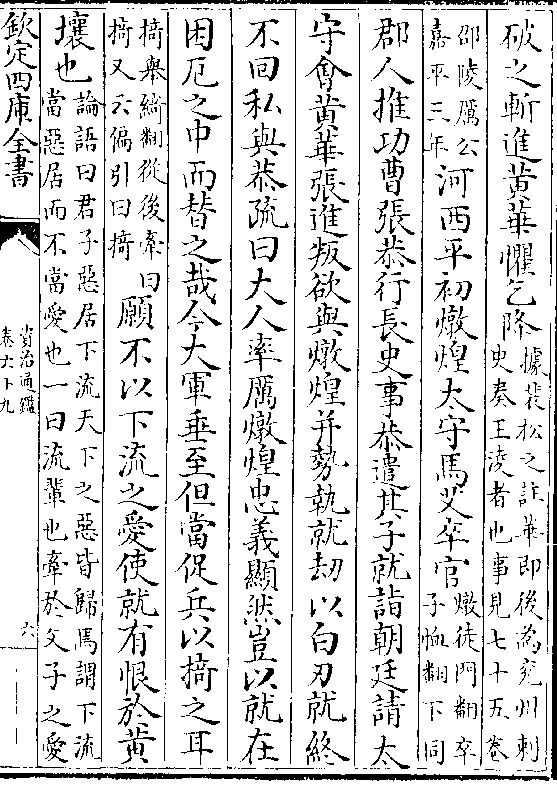 破之斬進黄華懼乞降據裴松之註華即後為兗州刺
史奏王淩者也事見七十五卷
邵陵厲公
嘉平三年河西平初燉煌太守馬艾卒官燉徒門翻卒
子恤翻下同
郡人推功曹張恭行長史事恭遣其子就詣朝廷請太
守會黄華張進叛欲與燉煌并勢執就劫以白刃就終
不回私與恭疏曰大人率厲燉煌忠義顯然豈以就在
困厄之中而替之哉今大軍垂至但當促兵以掎之耳
掎舉綺翻從後牽曰
掎又云偏引曰掎願不以下流之愛使就有恨於黄
壤也論語曰君子惡居下流天下之惡皆歸焉謂下流
當惡居而不當愛也一曰流輩也牽於父子之愛
欽定四庫全書
資治通鑑
卷六十九
六